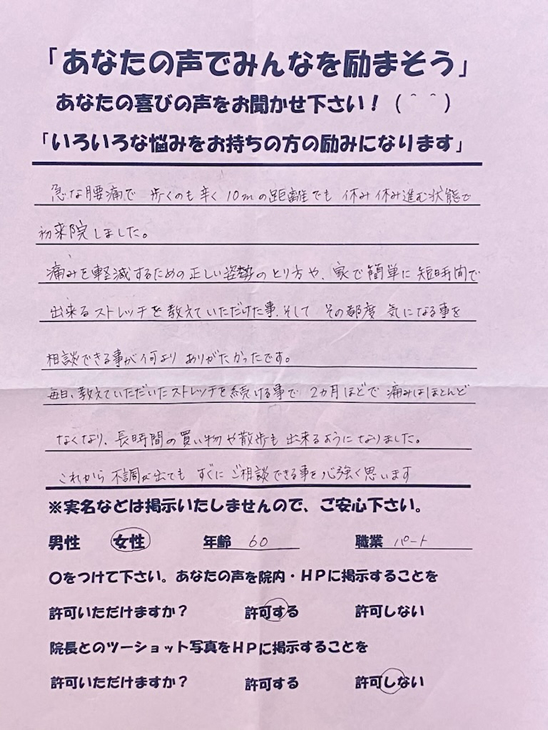 「あなたの声でみんなを励まそう」
あなたの喜びの声をお聞かせ下さい！（＾＾）
「いろいろな悩みをお持ちの方の励みになります」
急な腰痛で 歩くのも辛く 10mの距離でも 休み休み進む状態で
初来院しました。
痛みを軽減するための正しい姿勢のとり方や、家で簡単に短時間で
出来るストレッチを教えていただけた事、そして その都度 気になる事を
相談できる事が何より ありがたかったです。
毎日、教えていただいたストレッチを続ける事で 2カ月ほどで 痛みはほとんど
なくなり、長時間の買い物や散歩も出来るようになりました。
これから 不調が出ても すぐに ご相談できる事を心強く思います
※実名などは掲示いたしませんので、ご安心下さい。
男性 女性 年齢 60 職業 パート
〇をつけて下さい。あなたの声を院内・ＨＰに掲示することを
許可いただけますか？ 許可する 許可しない
院長とのツーショット写真をＨＰに掲示することを
許可いただけますか？ 許可する 許可しない